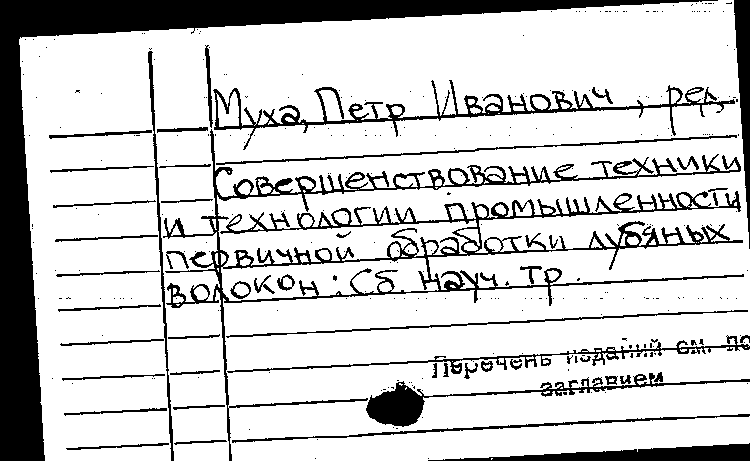 Муха, Петр Иванович, ред.
Совершенствование техники
и технологии промышленности
первичной обработки лубяных
волокон : Сб. науч. тр.
Перечень изданий см. по
заглавием